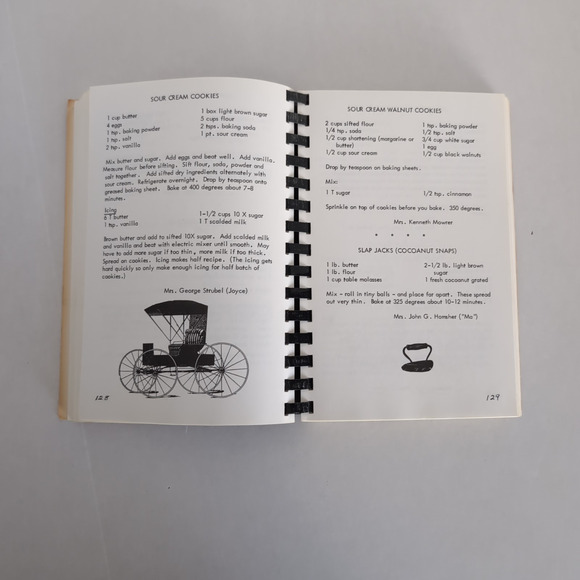 SOUR CREAM COOKIES
1 cup butter
4 eggs
1 tsp. baking powder
1 tsp. salt
2 tsp. vanilla
1 box light brown sugar
5 cups flour
2 tsps. baking soda
1 pt. sour cream
Mix butter and sugar. Add eggs and beat well. Add vanilla.
Measure flour before sifting. Sift flour, soda, powder and
salt together. Add sifted dry ingredients alternately with
sour cream. Refrigerate overnight. Drop by teaspoon onto
greased baking sheet. Bake at 400 degrees about 7-8
minutes.
Icing
8 T butter
1 tsp. vanilla
1-1/2 cups 10 X sugar
1 T scalded milk
Brown butter and add to sifted 10X sugar. Add scalded milk
and vanilla and beat with electric mixer until smooth. May
have to add more sugar if too thin, more milk if too thick.
Spread on cookies. Icing makes half recipe. (The Icing gets
hard quickly so only make enough icing for half batch of
cookies.)
Mrs. George Strubel (Joyce)
128
SOUR CREAM WALNUT COOKIES
2 cups sifted flour
1/4 tsp. soda
1/2 cup shortening (margarine or
butter)
1/2 cup sour cream
1 tsp. baking powder
1/2 tsp. salt
3/4 cup white sugar
1 egg
1/2 cup black walnuts
Drop by teaspoon on baking sheets.
Mix:
1 T sugar
1/2 tsp. cinnamon
Sprinkle on top of cookies before you bake. 350 degrees.
Mrs. Kenneth Mowrer
* * * *
SLAP JACKS (COCOANUT SNAPS)
1 lb. butter
1 lb. flour
1 cup table molasses
2-1/2 lb. light brown
sugar
1 fresh cocoanut grated
Mix - roll in tiny balls - and place far apart. These spread
out very thin. Bake at 325 degrees about 10-12 minutes.
Mrs. John G. Hamsher ("Mo")
129